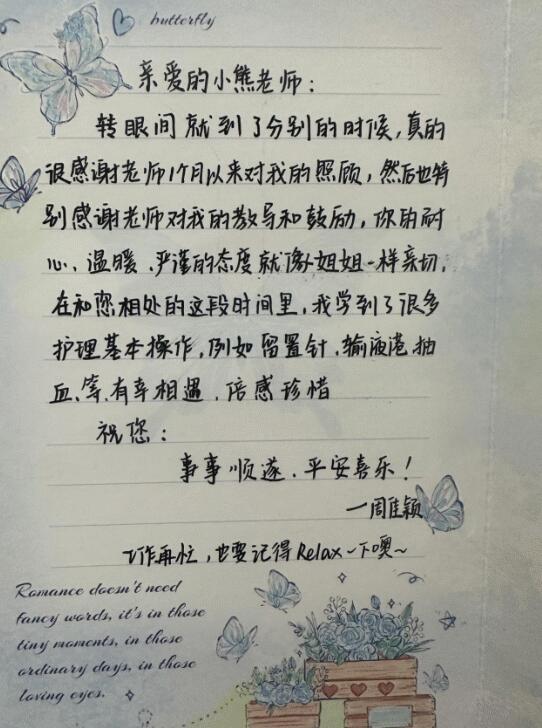 butterfly
亲爱的小熊老师：
转眼间就到了分别的时候，真的
很感谢老师1个月以来对我的照顾，然后也特
别感谢老师对我的教导和鼓励，你的耐
心、温暖、严谨的态度就像姐姐一样亲切，
在和您相处的这段时间里，我学到了很多
护理基本操作，例如留置针、输液港、抽
血、等、有幸相遇、倍感珍惜
祝您：
事事顺遂、平安喜乐！
—周佳颖
工作再忙，也要记得Relax~下噢~
Romance doesn't need
fancy words, it's in those
tiny moments, in those
ordinary days, in those
loving eyes.